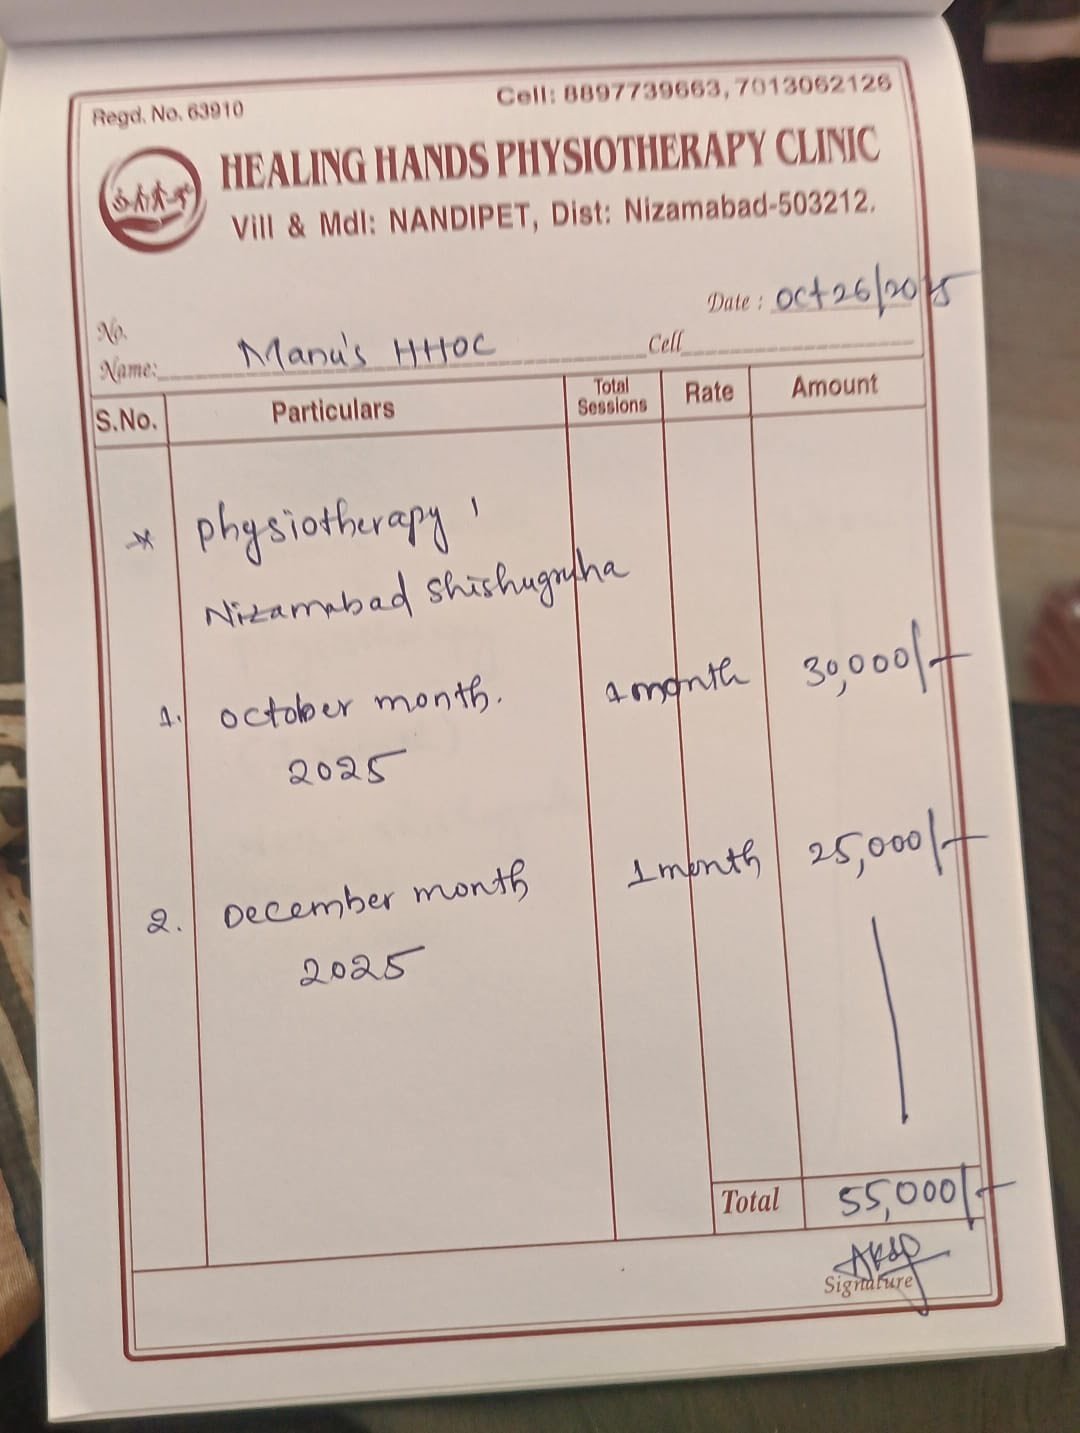 Regd. No. 63910
Cell: 8897739663, 7013062126
HEALING HANDS PHYSIOTHERAPY CLINIC
Vill & Mdl: NANDIPET, Dist: Nizamabad-503212.
Date : Oct 26/2025
No.
Name: Manu's HHOC Cell
S.No. Particulars Total Sessions Rate Amount
* Physiotherapy
Nizamabad Shishugruha
1. October month. 1 month 30,000/-
2025
2. December month 1 month 25,000/-
2025
Total 55,000/-
Signature